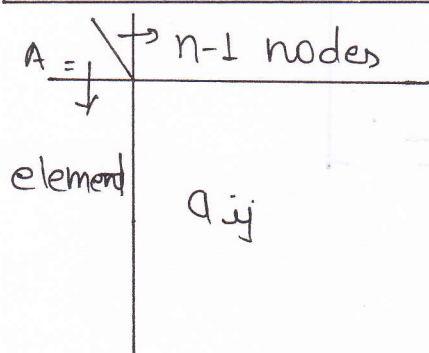 A = n-1 nodes
element
aij